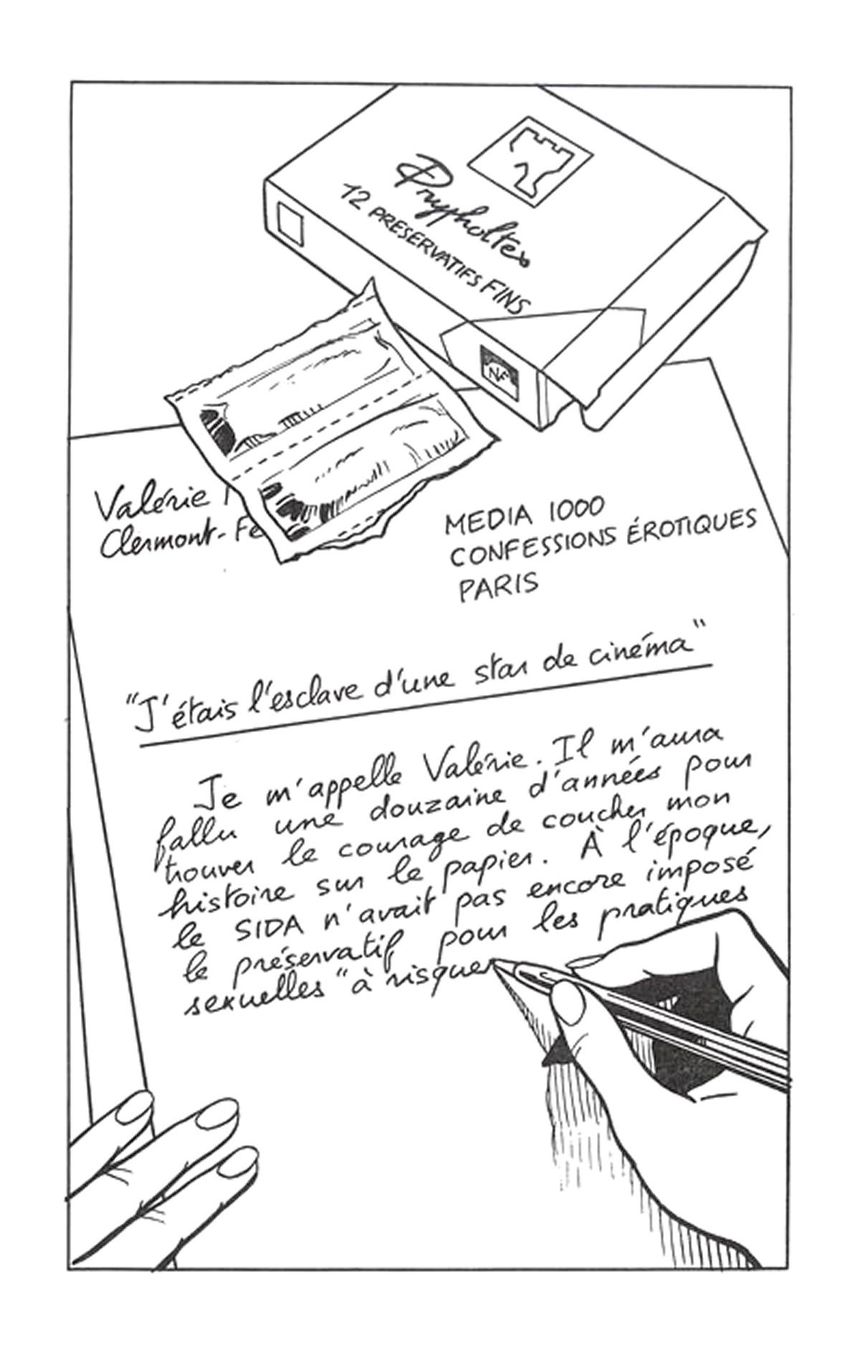 Prypholtex
12 PRESERVATIFS FINS
NF
Valérie
Clermont-Fe
MEDIA 1000
CONFESSIONS ÉROTIQUES
PARIS
"J'étais l'esclave d'une star de cinéma"
Je m'appelle Valérie. Il m'aura
fallu une douzaine d'années pour
trouver le courage de coucher mon
histoire sur le papier. À l'époque,
le SIDA n'avait pas encore imposé
le préservatif pour les pratiques
sexuelles "à risque